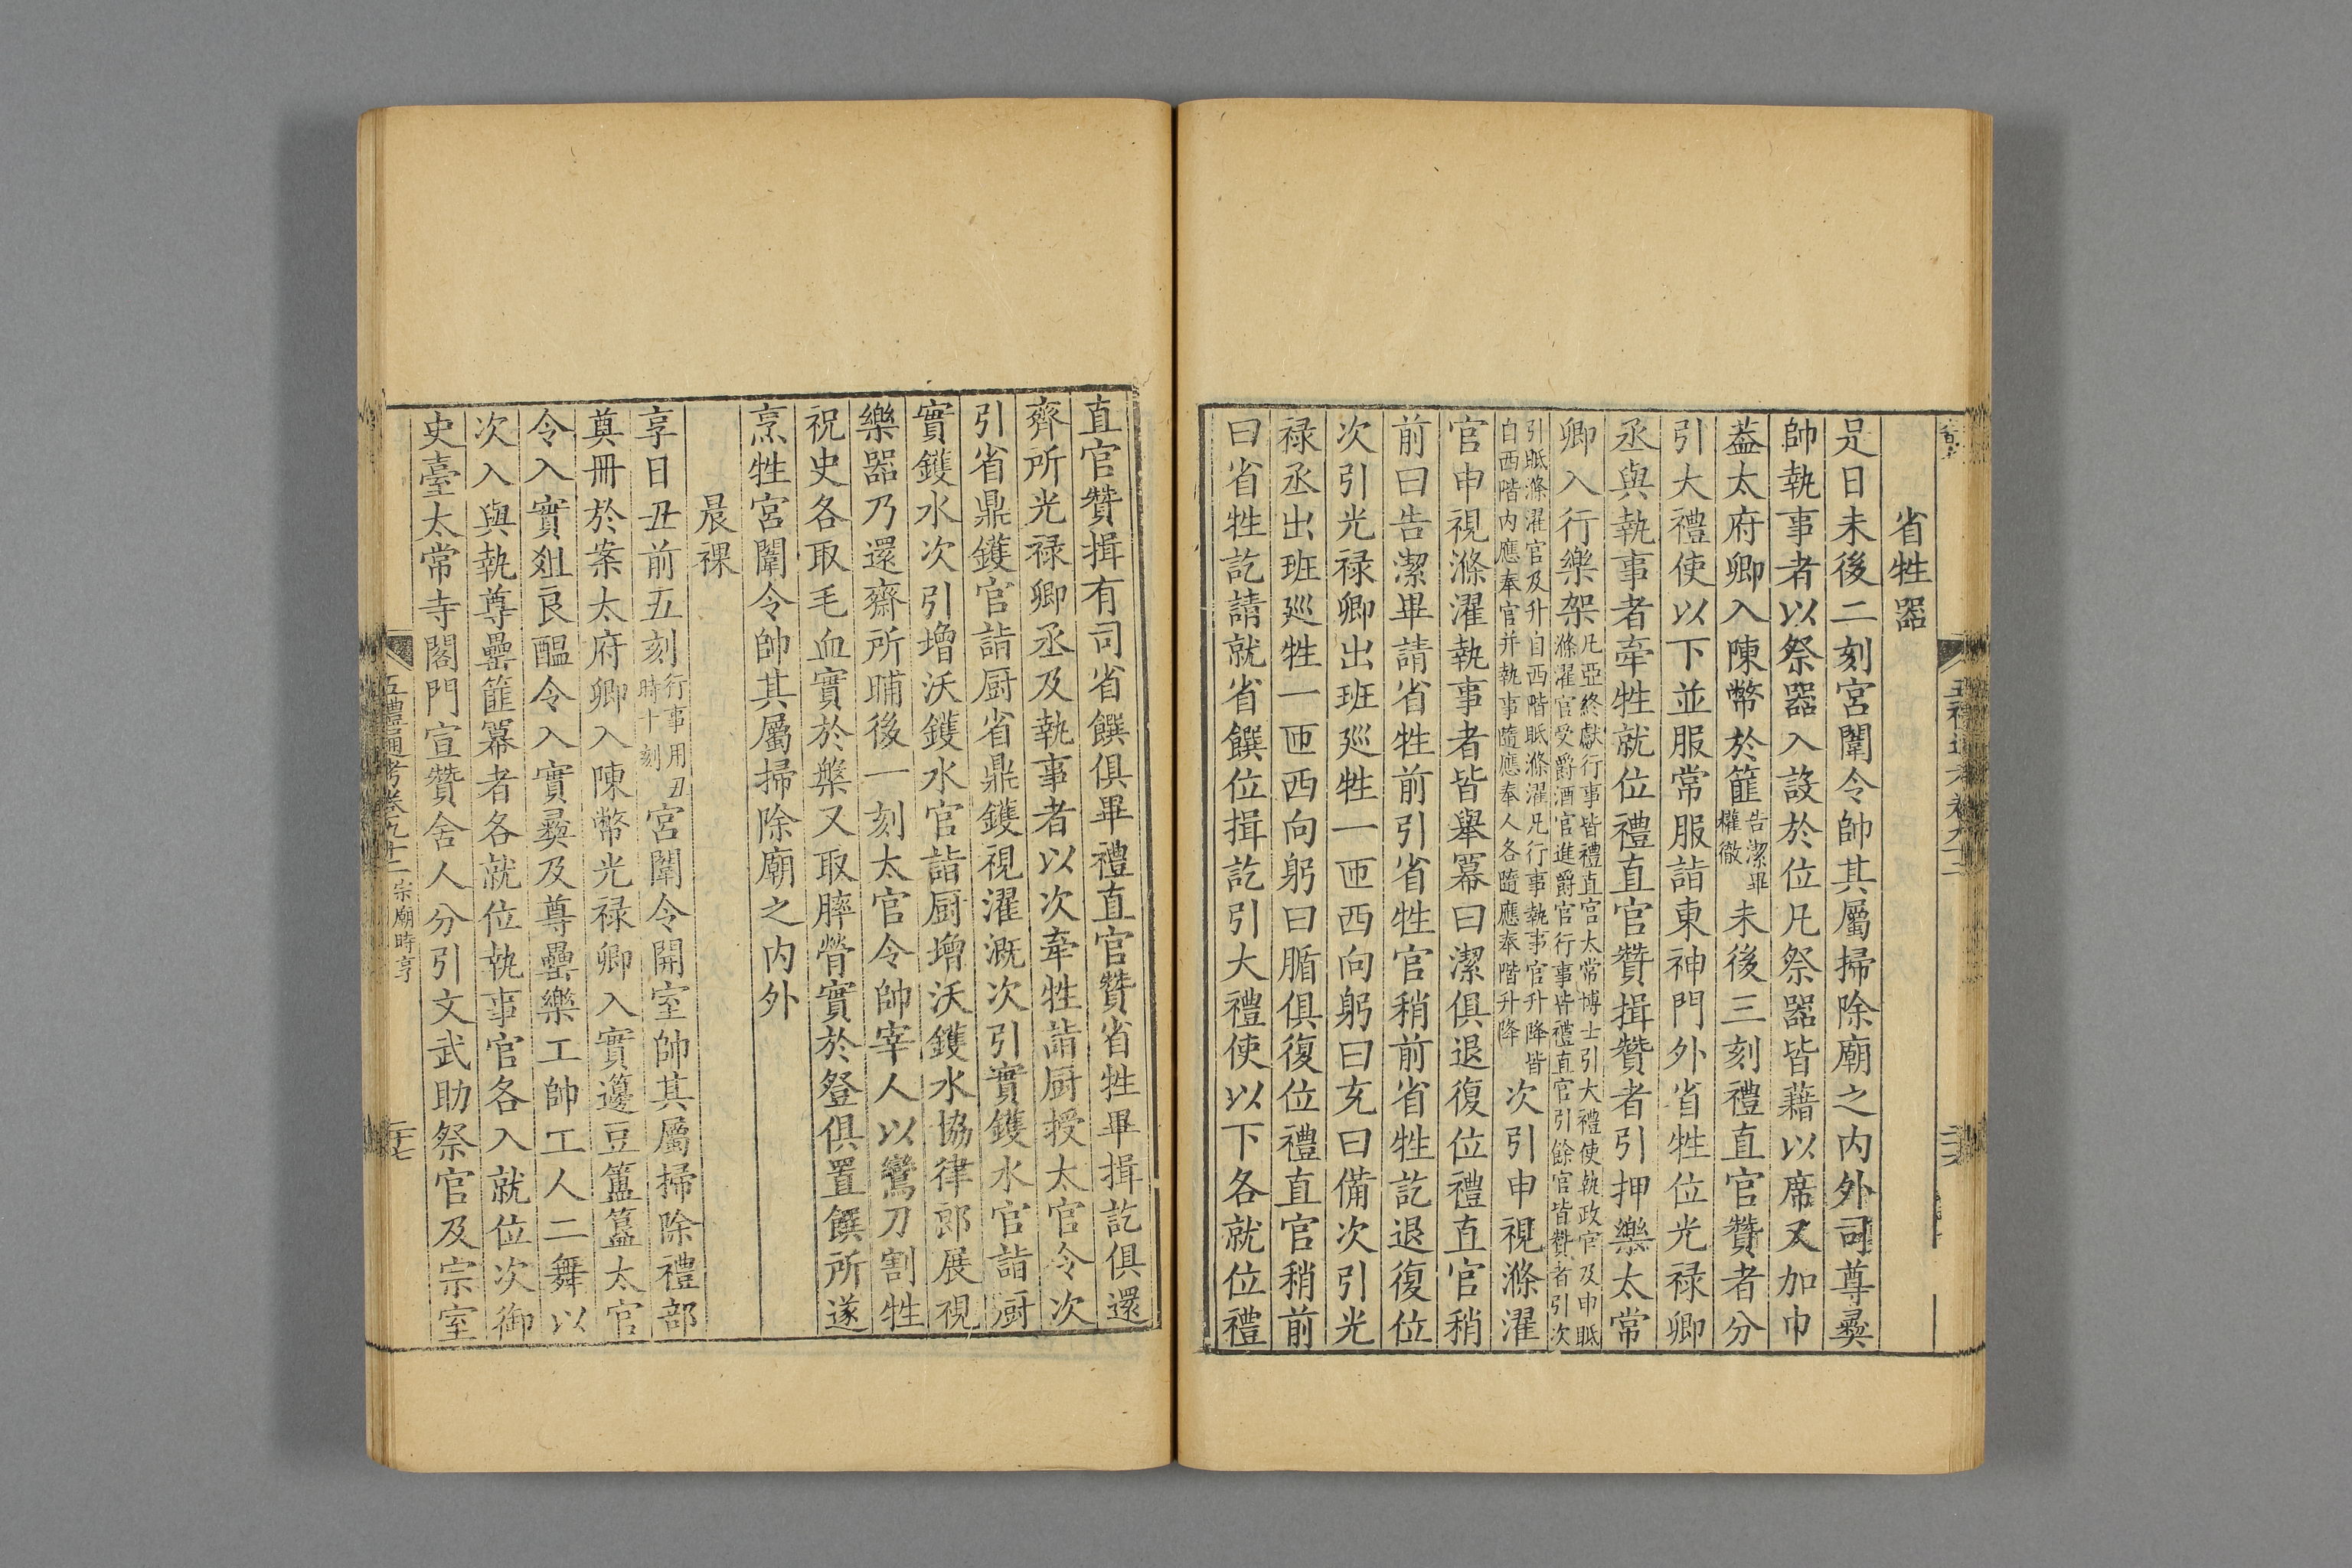 省牲器
是日未後二刻宮闈令帥其屬掃除廟之内外司尊彝
帥執事者以祭器入設於位凡祭器皆藉以席又加巾
葢太府卿入陳幣於篚告潔畢權徹未後三刻禮直官贊者分
引大禮使以下並服常服詣東神門外省牲位光禄卿
丞與執事者牽牲就位禮直官贊揖贊者引押樂太常
卿入行樂架凡亞終獻行事皆禮直官太常博士引大禮使執政官及申眡滌濯官受爵酒官進爵官行事皆禮直官引餘官皆贊者引次
引眡滌濯官及升自西階眡滌濯凡行事執事官升降皆自西階内應奉官并執事隨應奉人各隨應奉階升降次引申視滌濯
官申視滌濯執事者皆舉冪曰潔俱退復位禮直官稍
前曰告潔畢請省牲前引省牲官稍前省牲訖退復位
次引光禄卿出班廵牲一匝西向躬曰充曰備次引光
禄丞出班廵牲一匝西向躬曰腯俱復位禮直官稍前
曰省牲訖請就省饌位揖訖引大禮使以下各就位禮
直官贊揖有司省饌俱畢禮直官贊省牲畢揖訖俱還
齊所光禄卿丞及執事者以次牽牲詣厨授太官令次
引省鼎鑊官詣厨省鼎鑊視濯溉次引實鑊水官詣厨
實鑊水次引增沃鑊水官詣厨增沃鑊水協律郎展視
樂器乃還齋所晡後一刻太官令帥宰人以鸞刀割牲
祝史各取毛血實於槃又取膟膋實於登俱置饌所遂
烹牲宮闈令帥其屬掃除廟之内外
晨祼
享日丑前五刻行事用丑時十刻宮闈令開室帥其屬掃除禮部
奠冊於案太府卿入陳幣光禄卿入實籩豆簠簋太官
令入實俎良醖令入實彝及尊罍樂工帥工人二舞以
次入與執尊罍篚冪者各就位執事官各入就位次御
史臺太常寺閤門宣贊舍人分引文武助祭官及宗室
五禮通考卷九十二 宗廟時享
二十七